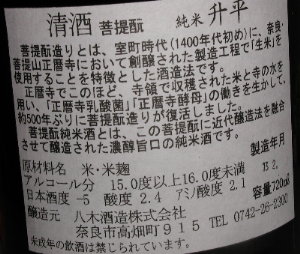 清酒 菩提酛 純米 升平
菩提酛造りとは、室町時代（1400年代初め）に、奈良・
菩提山正暦寺において創醸された製造工程で「生米」を
使用することを特徴とした酒造法です。
正暦寺でこのほど、寺領で収穫された米と寺の水を
用い、「正暦寺乳酸菌」「正暦寺酵母」の働きを生かして、
約500年ぶりに菩提酛造りが復活しました。
菩提酛純米酒とは、この菩提酛に近代醸造法を融合
させて醸造された濃醇旨口の純米酒です。
原材料名 米・米麹 製造年月
アルコール分 15.0度以上16.0度未満
日本酒度 -5 酸度 2.4 アミノ酸度 2.1 容量720ml
醸造元 八木酒造株式会社
奈良市高畑町915 TEL 0742-26-2300
未成年の飲酒は禁じられています。